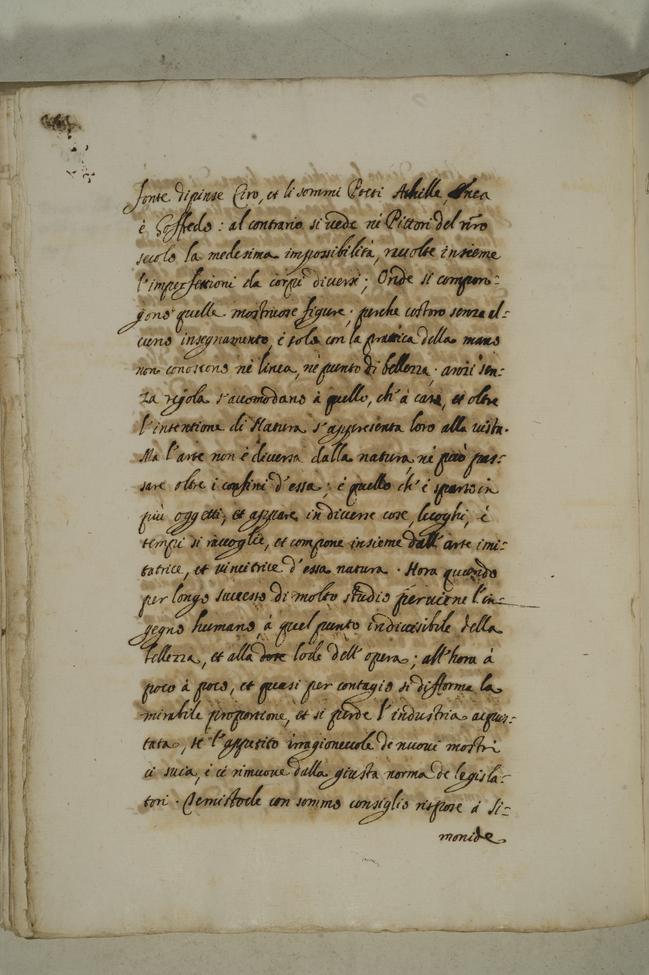 fonte dipinse Ciro, et li sommi Poeti Achille, Enea
è Goffredo: al contrario si uede nè Pittori del nr̃o
secolo la medesima impossibilità, raccolte insieme
l'imperfettioni da corpi diuersi; Onde si compon-
gono quelle mostruose figure; perche costoro senza al-
cuno insegnamento, è solo con la prattica della mano
non conoscono nè linea, nè punto di bellezza. anzi sen-
za regola s'accomodano à quello, ch'à caso, et oltre
l'intentione di Natura s'appresenta loro alla uista.
Ma l'arte non è diuersa dalla natura, nè può pas-
sare oltre i confini d'essa; è quello ch'è sparso in
più oggetti, et appare in diuerse cose, luoghi, è
tempi si raccoglie, et compone insieme dall'arte imi-
tatrice, et uincitrice d'essa natura. Hora quando
per longo successo di molto studio peruiene l'in-
gegno humano à quel punto indiuisibile della
bellezza, et alla lode dell'opera; all'hora à
poco à poco, et quasi per contagio si difforma la
mirabile proportione, et si perde l'industria acquis-
tata, se l'appetito irragioneuole de nuoui mostri
ci suia, è ci rimuoue dalla giusta norma de legisla-
tori. Temistocle con sommo consiglio rispose à Si-
monide